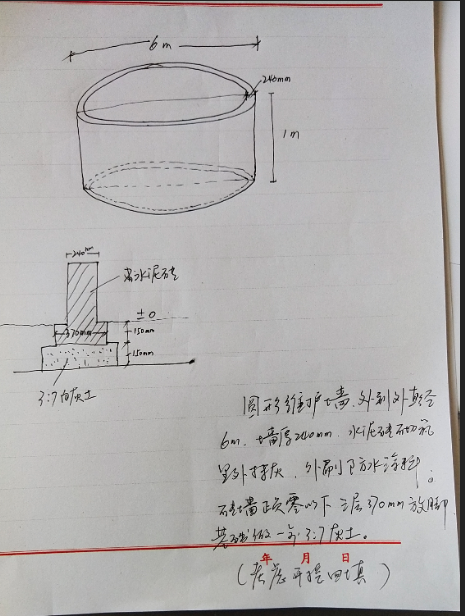 6m
240mm
1m
240mm
水泥砖
±0
370mm
150mm
150mm
3:7灰土
圆形维护墙,外到外直径
6m,墙厚240mm,水泥砖砌筑
里外抹灰,外刷防水涂料。
砖墙正负零以下二层370mm放脚
基础做一步3:7灰土。
年 月 日
(考虑开挖回填)